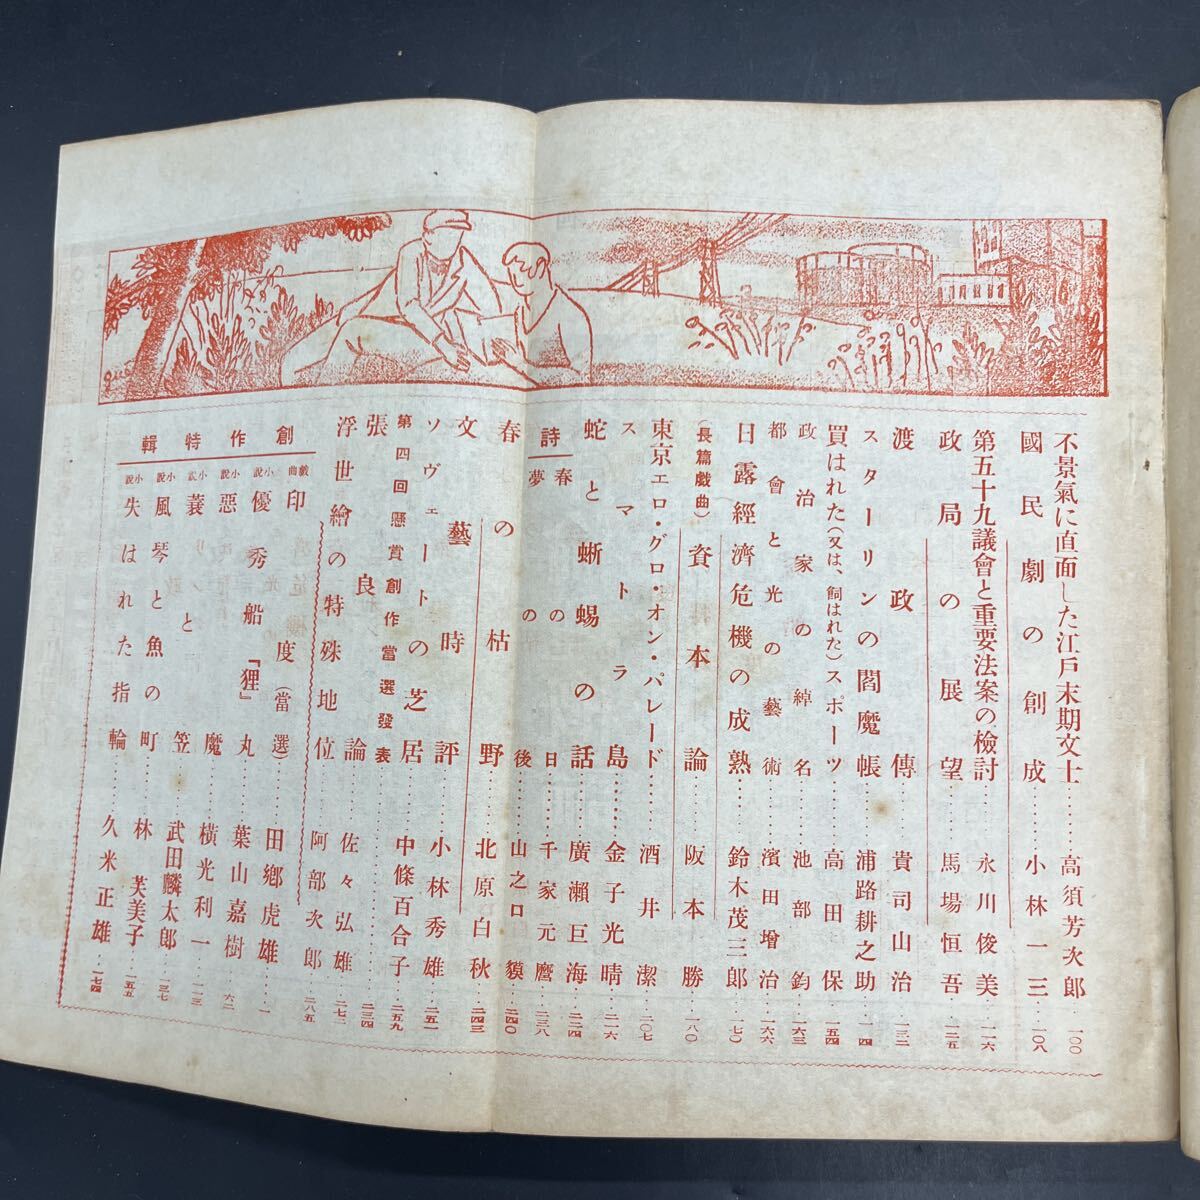 不景氣に直面した江戸末期文士……高須芳次郎 一〇〇
國民劇の創成……小林一三 一〇八
第五十九議會と重要法案の檢討……永川俊美 一一六
政局の展望……馬場恒吾 一二五
渡政傳……貴司山治 一三二
スターリンの閻魔帳……浦路耕之助 一一四
買はれた(又は、飼はれた)スポーツ……高田保 一五四
政治家の綽名……池部鈞 一六三
都會と光の藝術……濱田增治 一六六
日露經濟危機の成熟……鈴木茂三郎 七〇
(長篇戯曲) 資本論……阪本勝 一八〇
東京エロ・グロ・オン・パレード……酒井潔 二〇七
スマトラ島……金子光晴 二一六
蛇と蜥蜴の話……廣瀬巨海 二二四
詩
春の日……千家元麿 二三八
夢の後……山之口貘 二四〇
春の枯野……北原白秋 二四三
文藝時評……小林秀雄 二五一
ソヴェートの芝居……中條百合子 二五九
第四回懸賞創作當選發表……二三四
張良論……佐々弘雄 二七二
浮世繪の特殊地位……阿部次郎 二八五
創作特輯
戯曲 印度(當選)……田鄉虎雄 一
小說 優秀船『狸』丸……葉山嘉樹 六二
小說 惡魔……橫光利一 一一三
小說 蓑と笠……武田麟太郎 一三七
小說 風琴と魚の町……林芙美子 一五五
小說 失はれた指輪……久米正雄 一七四